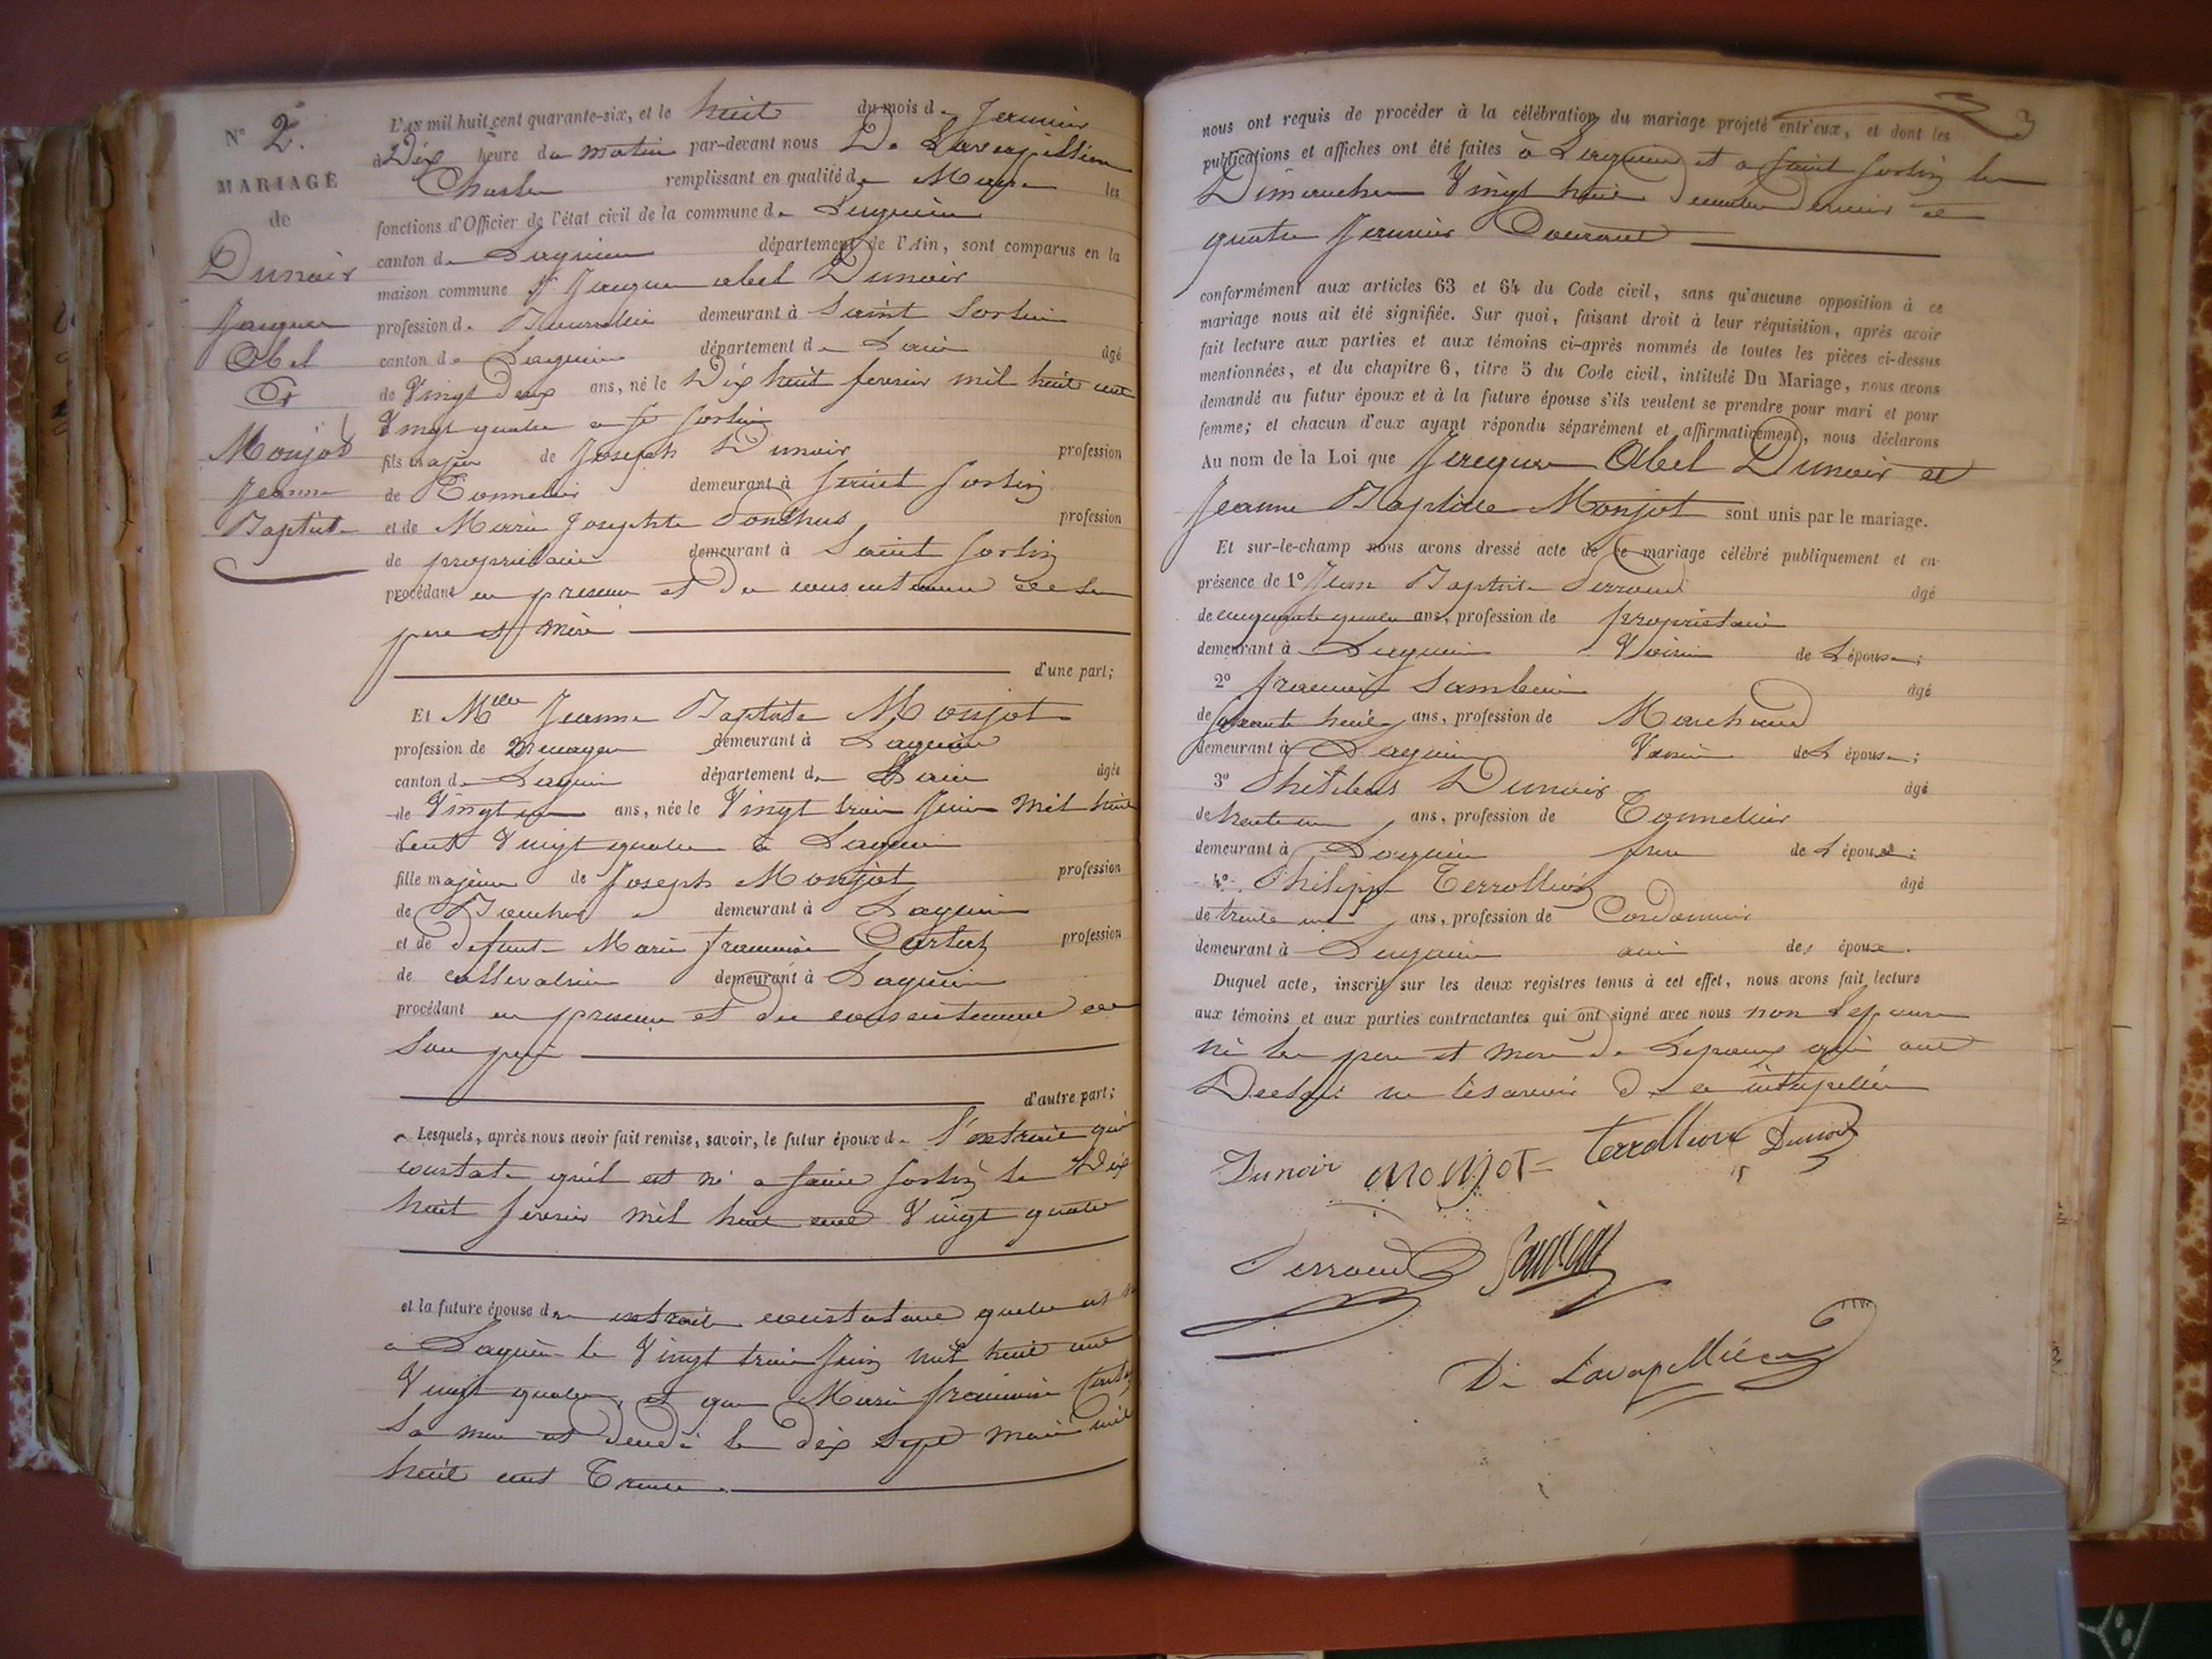 N° 2.
MARIAGE
de
Dunoir
Jacques
Abel
Et
Monjot
Jeanne
Baptiste
L'AN mil huit cent quarante-six, et le huit du mois de Janvier
à Dix heure du matin par-devant nous De Lavapillière
Charles remplissant en qualité de Maire les
fonctions d'Officier de l'état civil de la commune de Lagnieu
canton de Lagnieu département de l'Ain, sont comparus en la
maison commune Sr Jacques abel Dunoir
profession de demeurant à Saint Sorlin
canton de Lagnieu département de Lain âgé
de Vingt Deux ans, né le Dix huit fevrier mil huit cent
Vingt quatre a St Sorlin
fils majeur de Joseph Dunoir profession
de Tonnelier demeurant à Saint Sorlin
et de Marie Josephte Ponthus profession
de propriétaire demeurant à Saint Sorlin
procédant en presence et du consentement de ses
pere et mère
d'une part;
Et Mlle Jeanne Baptiste Monjot
profession de Menagere demeurant à Lagnieu
canton de Lagnieu département de Lain âgée
de Vingt un ans, née le Vingt trois Juin Mil huit
Cent Vingt quatre à Lagnieu
fille majeure de Joseph Monjot profession
de Boucher demeurant à Lagnieu
et de defunte Marie francoise profession
de cultivatrice demeurant à Lagnieu
procédant en presence et du consentement de
Son père
d'autre part;
Lesquels, après nous avoir fait remise, savoir, le futur époux de l'extrait qui
constate qu'il est né a Saint Sorlin le Dix
huit fevrier mil huit cent Vingt quatre
et la future épouse de extrait constatant quelle est
a Lagnieu le Vingt trois Juin mil huit cent
Vingt quatre, et que Marie francoise
Sa mere est décedé le dix sept mil
huit cent Trente.
3
nous ont requis de procéder à la célébration du mariage projeté entr'eux, et dont les
publications et affiches ont été faites à Lagnieu et a Saint Sorlin les
Dimanches Vingt huit decembre dernier et
quatre Janvier Courant
conformément aux articles 63 et 64 du Code civil, sans qu'aucune opposition à ce
mariage nous ait été signifiée. Sur quoi, faisant droit à leur réquisition, après avoir
fait lecture aux parties et aux témoins ci-après nommés de toutes les pièces ci-dessus
mentionnées, et du chapitre 6, titre 5 du Code civil, intitulé Du Mariage, nous avons
demandé au futur époux et à la future épouse s'ils veulent se prendre pour mari et pour
femme; et chacun d'eux ayant répondu séparément et affirmativement, nous déclarons
Au nom de la Loi que Jacques Abel Dunoir et
Jeanne Baptiste Monjot sont unis par le mariage.
Et sur-le-champ nous avons dressé acte de ce mariage célébré publiquement et en
présence de 1° Jean Baptiste Perroud âgé
de cinquante quatre ans, profession de propriétaire
demeurant à Lagnieu Voisin de Lépouse;
2° francois âgé
de huit ans, profession de Marchand
demeurant à Lagnieu Voisin de L épouse;
3° Dunoir âgé
de trente un ans, profession de Tonnelier
demeurant à Lagnieu frere de L époux;
4° Philippe Terrollion âgé
de trente ans, profession de Cordonnier
demeurant à Lagnieu ami des époux.
Duquel acte, inscrit sur les deux registres tenus à cet effet, nous avons fait lecture
aux témoins et aux parties contractantes qui ont signé avec nous non Lepouse
ni les pere et mere de Lepoux qui ont
Declaré ne le savoir de ce interpellés
Dunoir Monjot Terrollion Dunoir
Perroud
De Lavapillière